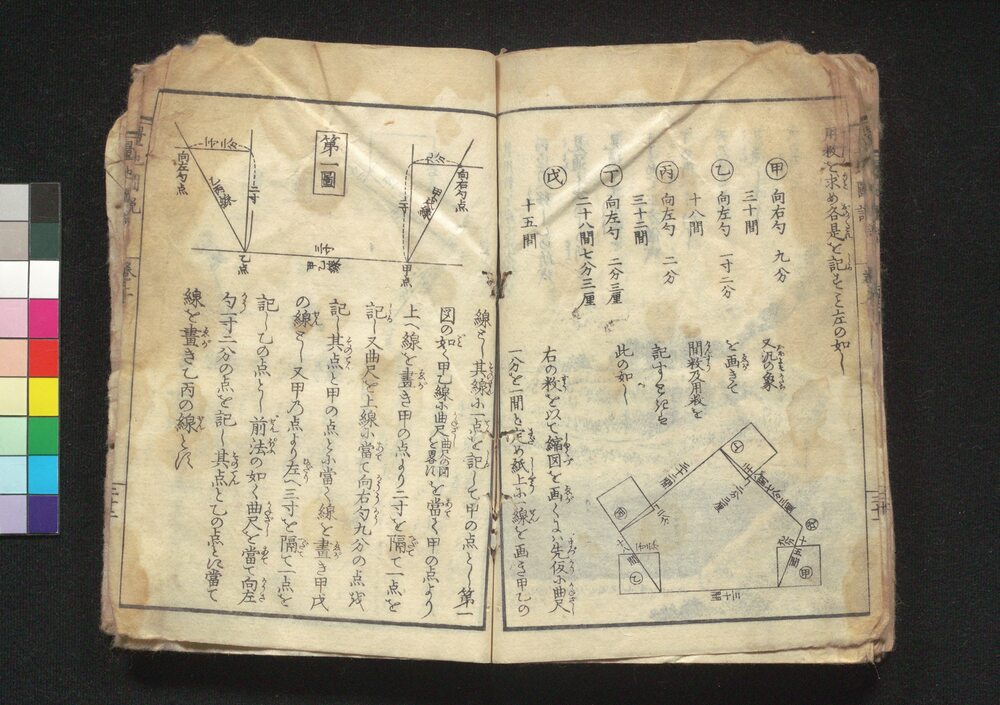 用数を求め各是を記すこと左の如し
甲 向右勾 九分
三十間
乙 向左勾 一寸二分
十八間
丙 向左勾 二分
三十二間
丁 向左勾 二分三厘
二十八間七分三厘
戊
十五間
又沢の象
を画きて
間数及用数を
記すること
此の如し
右の数を以て縮図を画くには先仮に曲尺
一分を一間と定め紙上に一線を画き甲乙の
線とし其線に一点を記して甲の点とし第一
図の如く甲乙線に曲尺を當て甲の点より
上へ線を畫き甲の点より二寸を隔て一点を
記し又曲尺を上線に當て向右勾九分の点を
記し其点と甲の点とに當て線を畫き甲戊
の線とし又甲の点より左へ三寸を隔て一点を
記し乙の点とし前法の如く曲尺を當て向左
勾一寸二分の点を記し其点と乙の点とに當て
線を畫き乙丙の線とす
第一圖
向右勾点
甲点
二寸
向左勾点
二寸
乙点
三寸
甲
乙
丙
丁
戊
三十間